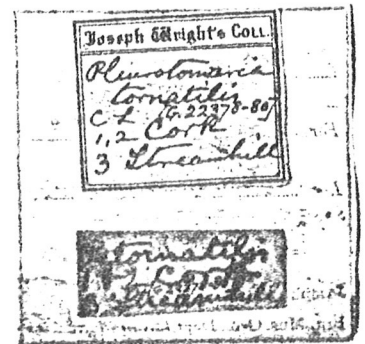 Joseph Wright's Coll.
Pleurotomaria
tornatilis
C L G. 22378-80
1, 2 Cork
3 Streamhill
tornatilis
1, 2 Cork
3 Streamhill